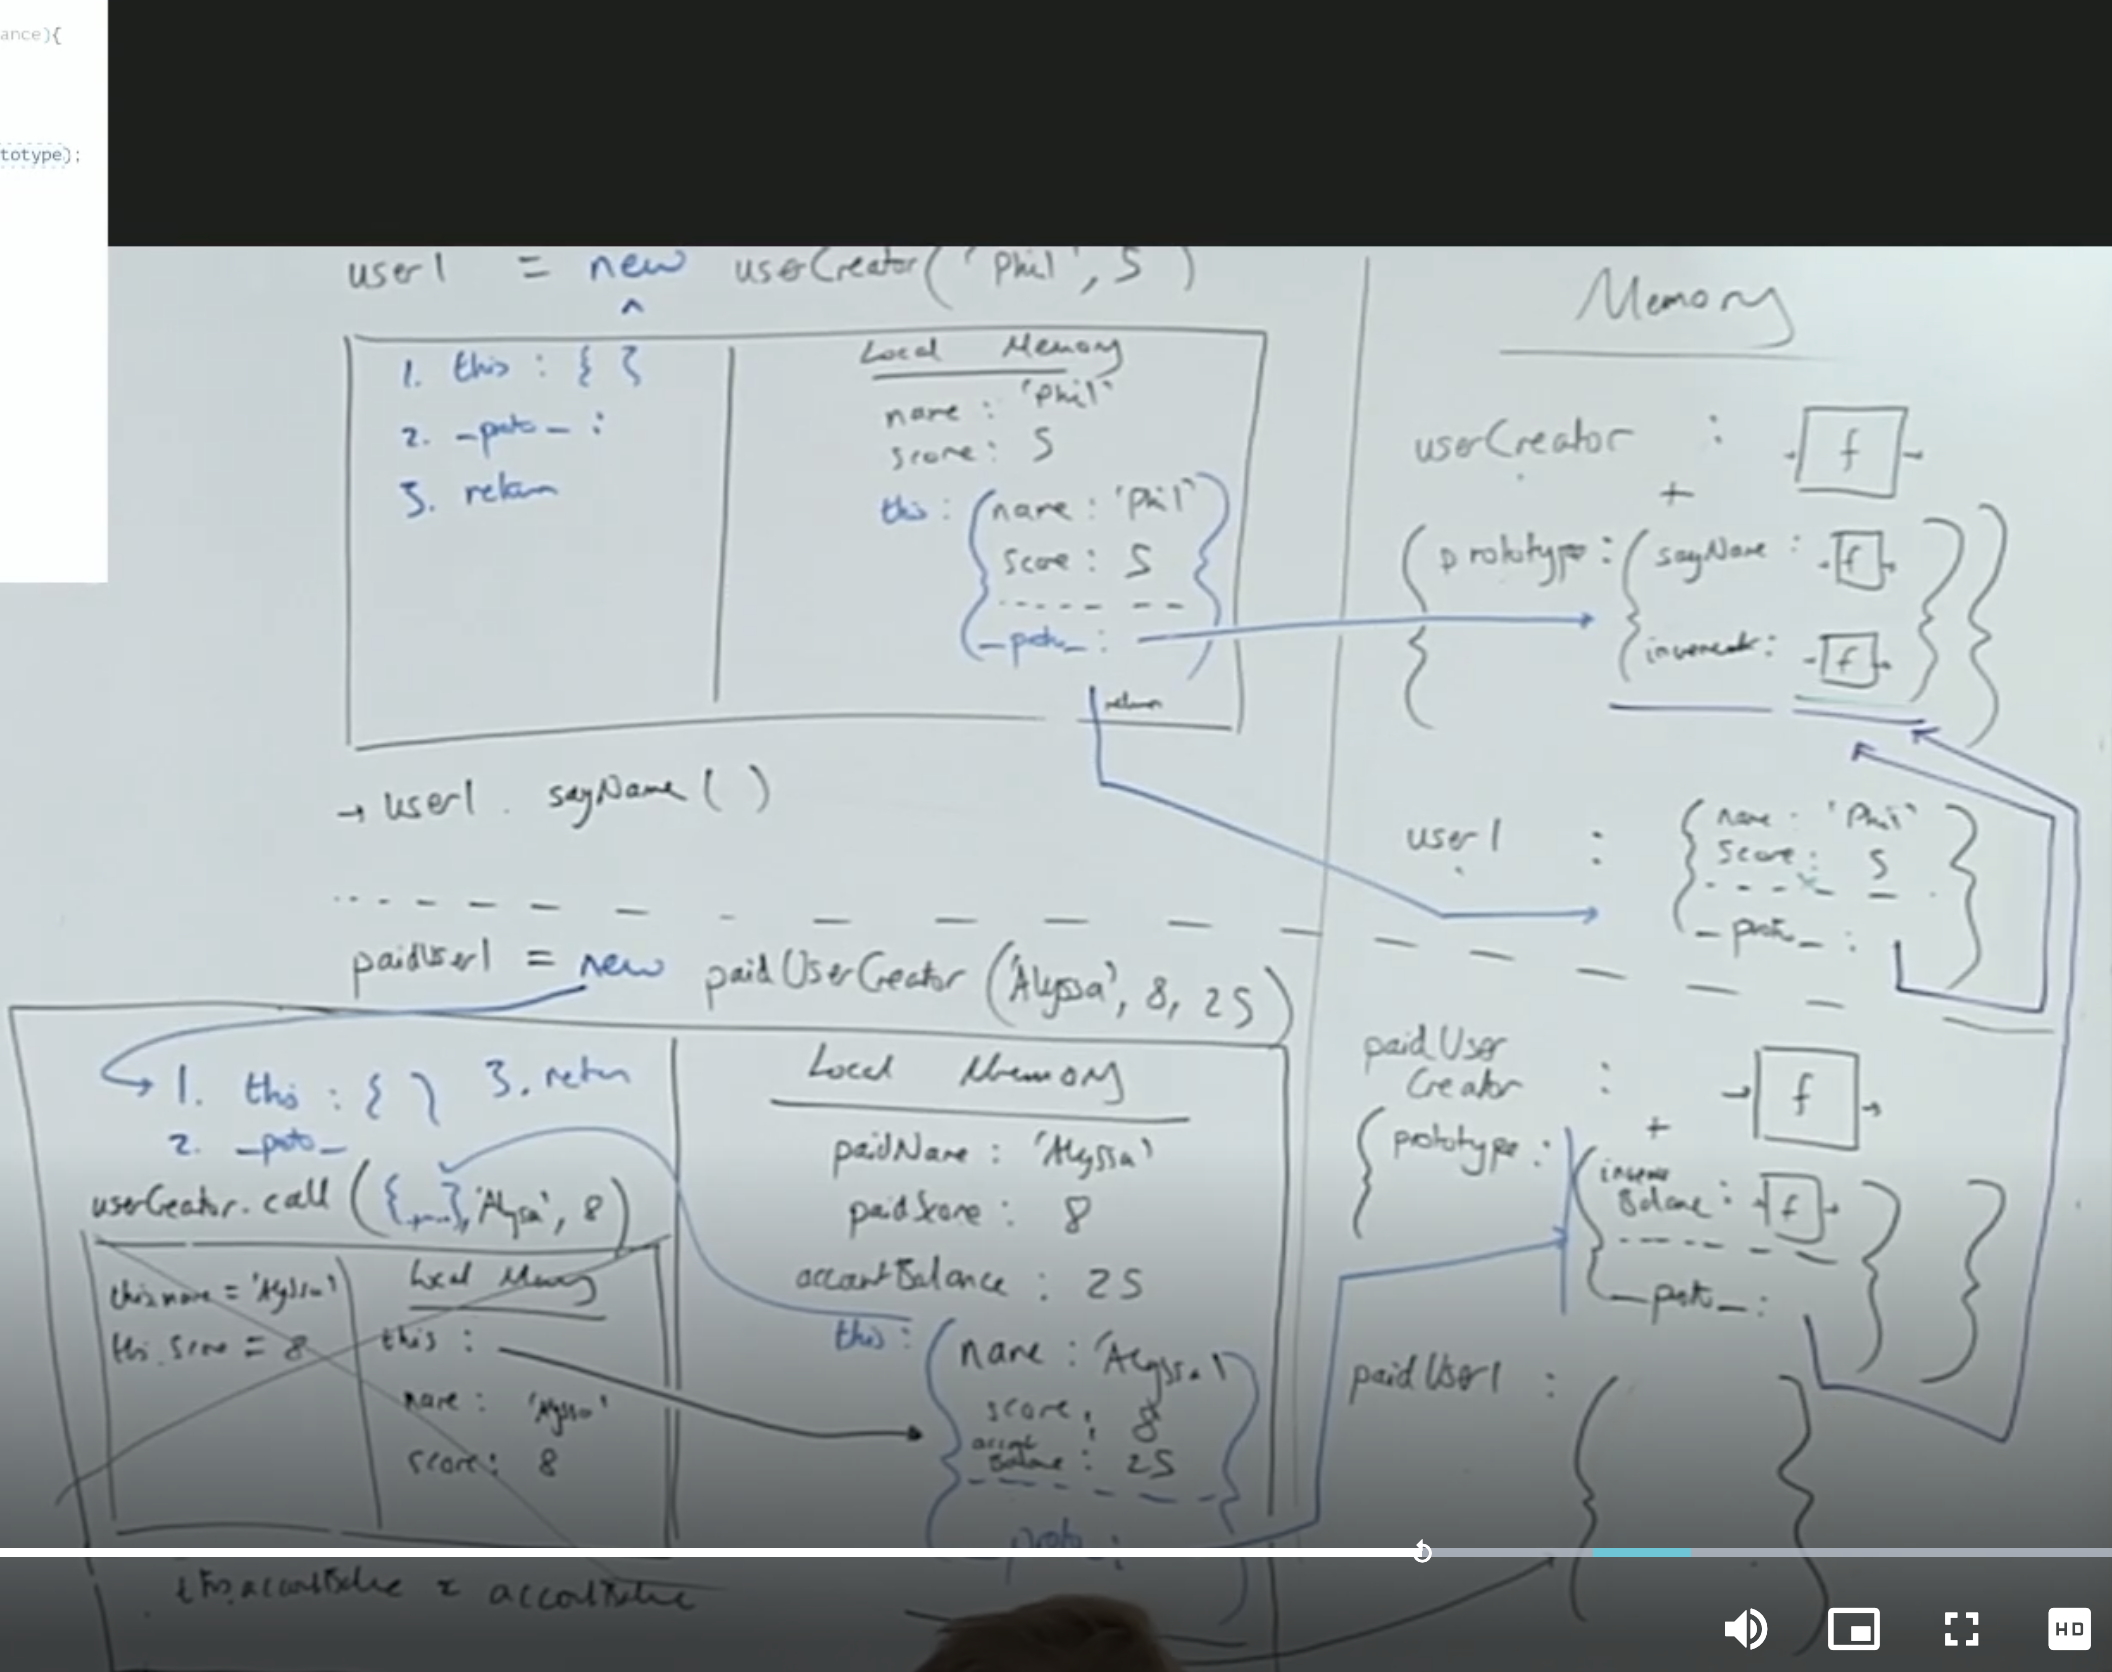 ance){
totype);
user1 = new userCreator('Phil', 5)
^
1. this : { }
2. _proto_ :
3. return
Local Memory
name : 'Phil'
score : 5
this : {name : 'Phil'
score : 5
_proto_ : }
return
→ user1 . sayName ( )
paidUser1 = new paidUserCreator ('Alyssa', 8, 25)
1. this : { } 3. return
2. _proto_
userCreator.call ({ }, 'Alyssa', 8)
this.name = 'Alyssa'
this.score = 8
Local Memory
this :
name : 'Alyssa'
score : 8
this.accountBalance = accountBalance
Local Memory
paidName : 'Alyssa'
paidScore : 8
accountBalance : 25
this : {name : 'Alyssa'
score : 8
account
Balance : 25
proto : }
Memory
userCreator : f
+
{prototype : {sayName : f
increment : f } }
user1 : {name : 'Phil'
score : 5
_proto_ : }
paidUser
Creator : f
+
{prototype : {
Balance : f
_proto_ : } }
paidUser1 : { }
HD